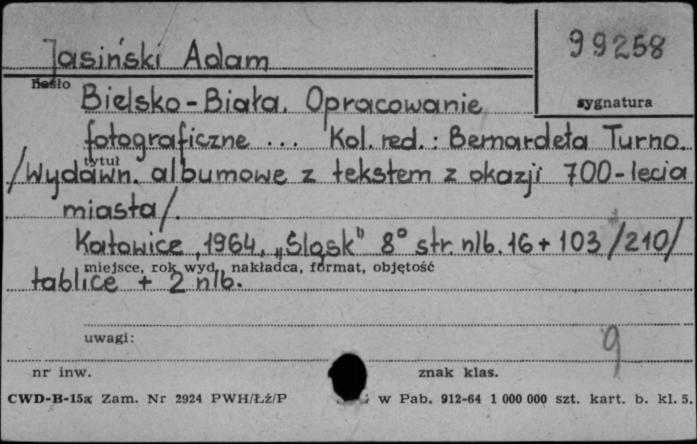 Jasiński Adam
99258
hasło
sygnatura
Bielsko-Biała. Opracowanie
fotograficzne ... Kol. red.: Bernardeta Turno.
tytuł
/Wydawn. albumowe z tekstem z okazji 700-lecia
miasta/.
Katowice, 1964, „Śląsk" 8° str. nlb. 16 + 103 /210/
miejsce, rok wyd., nakładca, format, objętość
tablice + 2 nlb.
uwagi:
9
nr inw.
znak klas.
CWD-B-15a Zam. Nr 2924 PWH/Łź/P w Pab. 912-64 1 000 000 szt. kart. b. kl. 5.